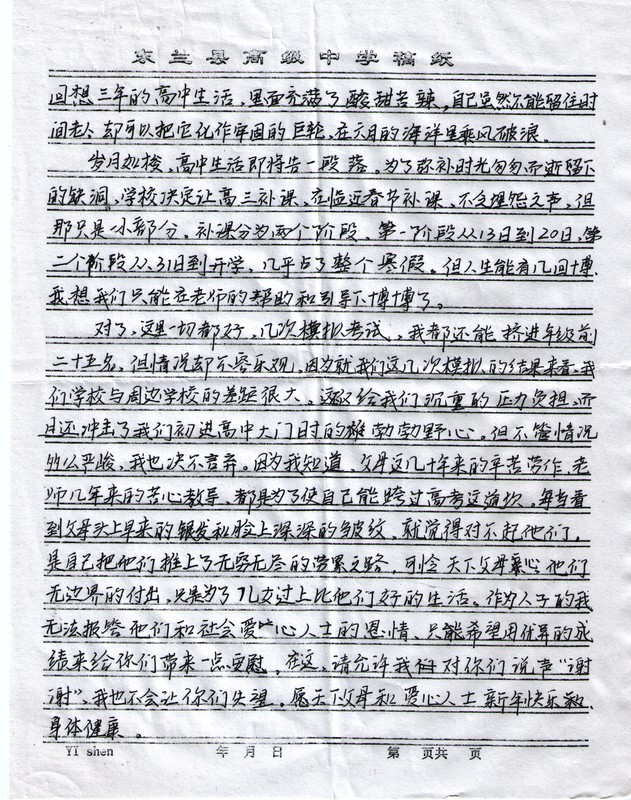 东兰县高级中学稿纸
回想三年的高中生活,里面充满了酸甜苦辣,自己虽然不能留住时
间老人却可以把它化作牢固的巨轮,在六月的海洋里乘风破浪。
岁月如梭,高中生活即将告一段落。为了弥补时光匆匆而逝留下
的缺洞,学校决定让高三补课。在临近春节补课、不乏埋怨之声,但
那只是小部分。补课分为两个阶段、第一阶段从13日到20日、第
二个阶段从31日到开学,几乎占了整个寒假。但人生能有几回博、
我想我们只能在老师的帮助和引导下博博了。
对了,这里一切都好,几次模拟考试,我都还能挤进年级前
二十五名。但情况却不容乐观,因为就我们这几次模拟的结果来看、我
们学校与周边学校的差距很大。这仅给我们沉重的压力负担、而
且还冲击了我们初进高中大门时的雄勃勃野心。但不管情况
多么严峻,我也决不言弃。因为我知道、父母这几十年来的辛苦劳作、老
师几年来的苦心教导、都是为了使自己能跨过高考这道坎。每当看
到父母头上早来的银发和脸上深深的皱纹、就觉得对不起他们。
是自己把他们推上了无穷无尽的劳累之路,可怜天下父母心他们
无边界的付出,只是为了儿女过上比他们好的生活。作为人子的我
无法报答他们和社会爱心人士的恩情、只能希望用优异的成
绩来给你们带来一点安慰。在这、请允许我对你们说声“谢
谢”、我也不会让你们失望。愿天下父母和爱心人士新年快乐
身体健康。
YI shen 年 月 日 第 页共 页